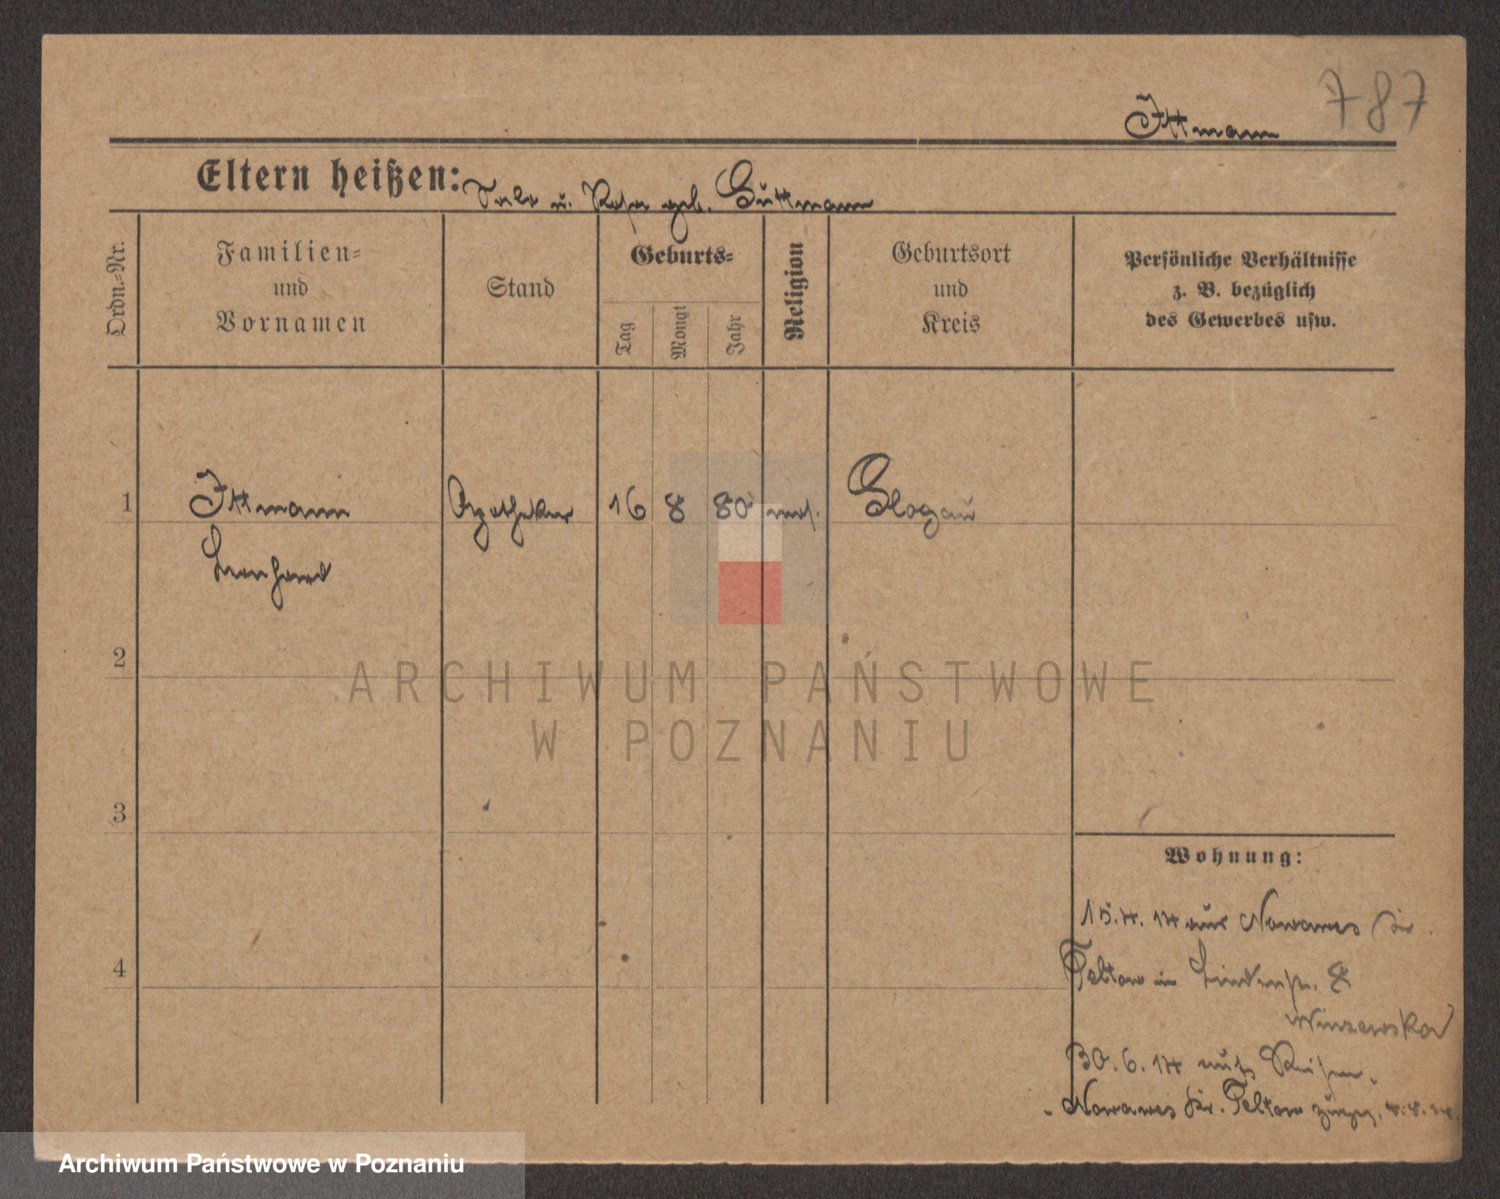 787
Ittmann
Eltern heißen: u. Rosa geb. Guttmann
Ordn.-Nr.
Familien-
und
Vornamen
Stand
Geburts-
Tag
Monat
Jahr
Religion
Geburtsort
und
Kreis
Persönliche Verhältnisse
z. B. bezüglich
des Gewerbes usw.
1 Ittmann Apotheker 16 8 80 mos. Glogau
Leonhard
2
3
4
Wohnung:
15.4.14 aus Nowawes Kr.
Teltow in Lindenstr. 8
30.6.14 nach
Nowawes Kr. Teltow
ARCHIWUM PAŃSTWOWE
W POZNANIU
Archiwum Państwowe w Poznaniu